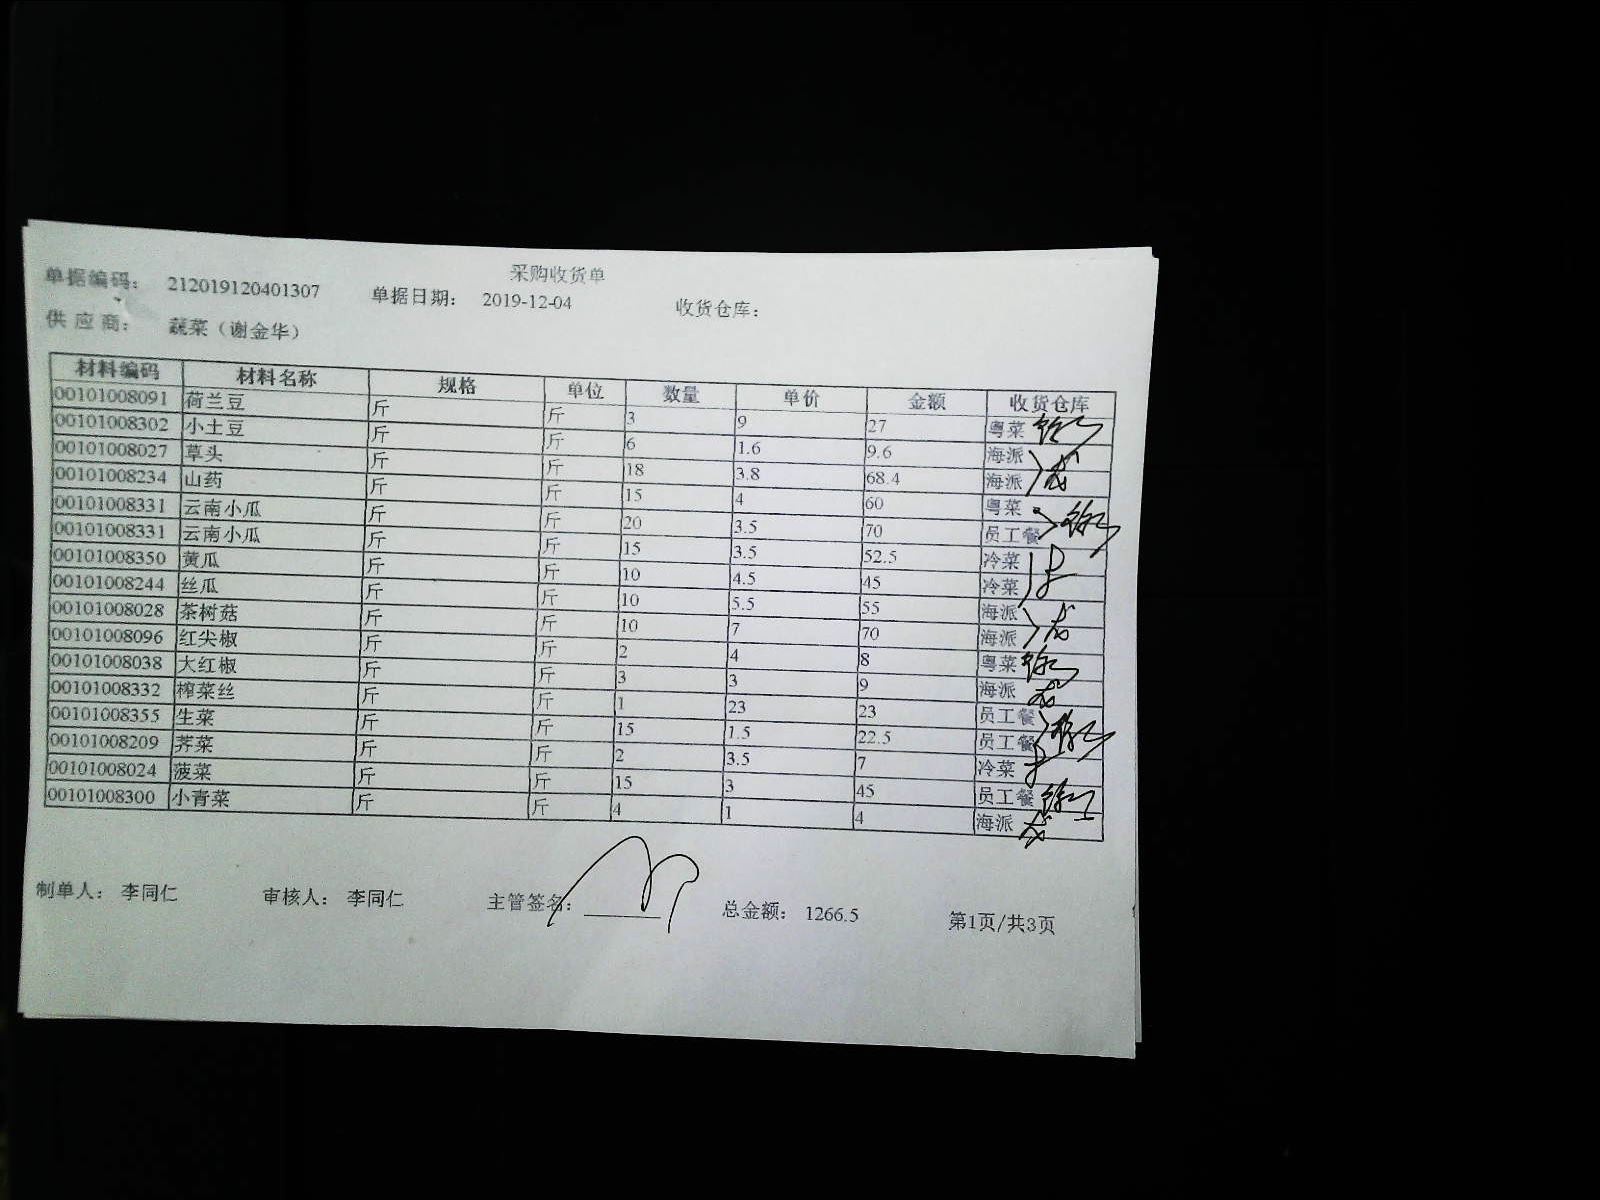 采购收货单
单据编码： 212019120401307 单据日期： 2019-12-04 收货仓库：
供 应 商： 蔬菜（谢金华）
材料编码 材料名称 规格 单位 数量 单价 金额 收货仓库
00101008091 荷兰豆 斤 斤 3 9 27 粤菜
00101008302 小土豆 斤 斤 6 1.6 9.6 海派
00101008027 草头 斤 斤 18 3.8 68.4 海派
00101008234 山药 斤 斤 15 4 60 粤菜
00101008331 云南小瓜 斤 斤 20 3.5 70 员工餐
00101008331 云南小瓜 斤 斤 15 3.5 52.5 冷菜
00101008350 黄瓜 斤 斤 10 4.5 45 冷菜
00101008244 丝瓜 斤 斤 10 5.5 55 海派
00101008028 茶树菇 斤 斤 10 7 70 海派
00101008096 红尖椒 斤 斤 2 4 8 粤菜
00101008038 大红椒 斤 斤 3 3 9 海派
00101008332 榨菜丝 斤 斤 1 23 23 员工餐
00101008355 生菜 斤 斤 15 1.5 22.5 员工餐
00101008209 荠菜 斤 斤 2 3.5 7 冷菜
00101008024 菠菜 斤 斤 15 3 45 员工餐
00101008300 小青菜 斤 斤 4 1 4 海派
制单人： 李同仁 审核人： 李同仁 主管签名： 总金额： 1266.5 第1页/共3页